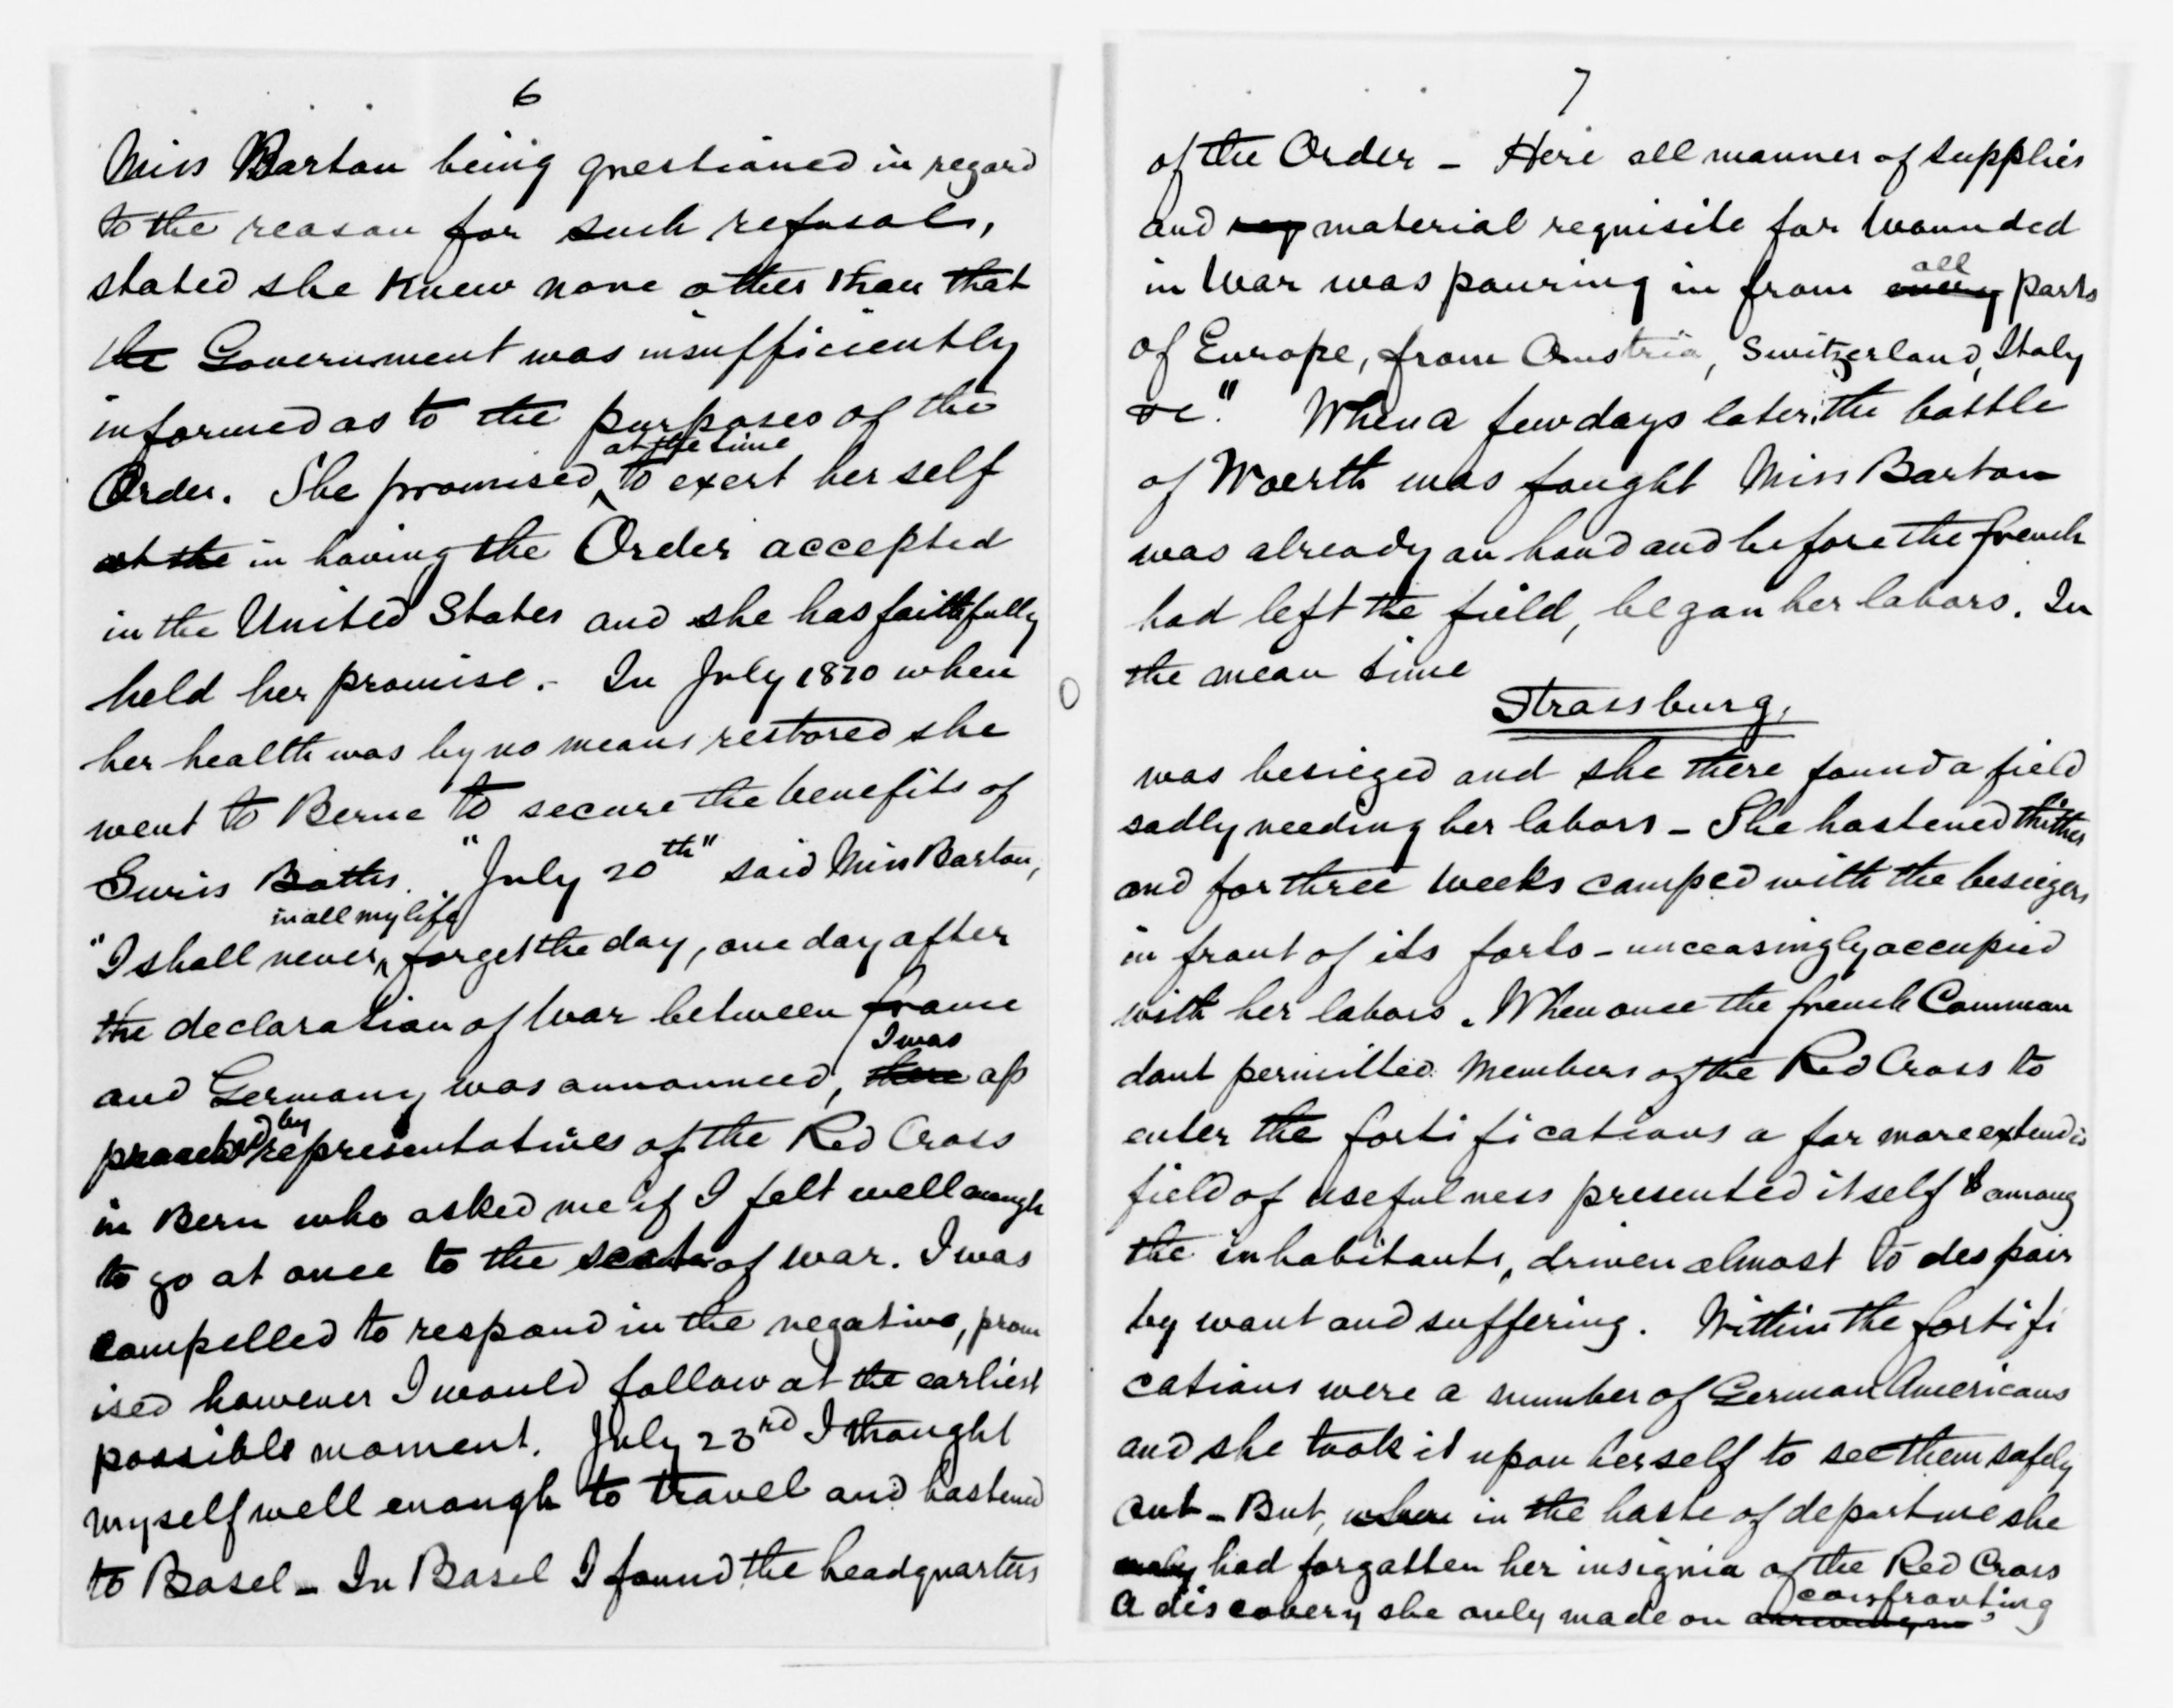 6
Miss Barton being questioned in regard
to the reason for such refusal,
stated she knew none other than that
the Government was insufficiently
informed as to the purposes of the
at the time
Order. She promised, to exert her self
at the in having the Order accepted
in the United States and she has faithfully
held her promise. - In July 1870 when
her health was by no means restored she
went to Berne to secure the benefits of
Swiss Baths. "July 20th" said Miss Barton,
in all my life
"I shall never, forget the day, one day after
the declaration of War between france
I was
and Germany was announced, there ap
by
proached representatives of the Red Cross
in Bern who asked me if I felt well enough
to go at once to the seat of war. I was
compelled to respond in the negative, prom
ised however I would follow at the earliest
possible moment. July 23rd I thought
myself well enough to travel and hastened
to Basel - In Basel I found the headquarters
7
of the Order - Here all manner of supplies
and req material requisite for wounded
all
in War was pouring in from every parts
of Europe, from Austria, Switzerland, Italy
&c." When a few days later, the battle
of Woerth was fought Miss Barton
was already on hand and before the french
had left the field, began her labors. In
the mean time
Strassburg,
was besieged and she there found a field
sadly needing her labors - She hastened thither
and for three weeks camped with the besiegers
in front of its forts - unceasingly occupied
with her labors. When once the french Comman
dant permitted Members of the Red Cross to
enter the fortifications a far more extended
field of usefulness presented itself & among
the inhabitants, driven almost to despair
by want and suffering. Within the fortifi
cations were a number of German Americans
and she took it upon herself to see them safely
out - But, when in the haste of departure she
only had forgotten her insignia of the Red Cross
confronting
a discovery she only made on